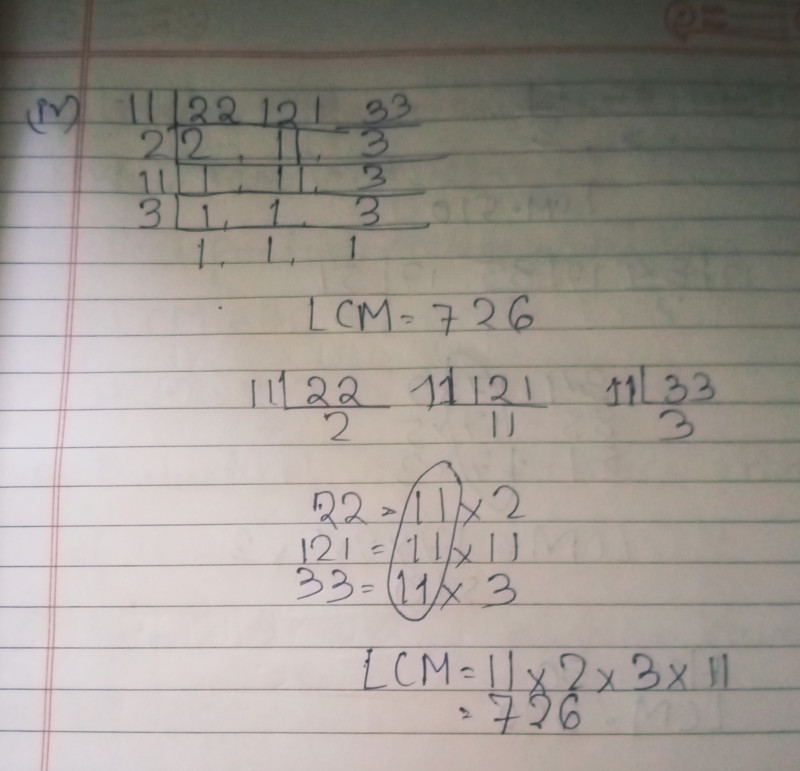 (iv) 11 | 22 121 33
2 | 2, 11, 3
11 | 1, 11, 3
3 | 1, 1, 3
1, 1, 1
LCM = 726
11 | 22 11 | 121 11 | 33
2 11 3
22 = 11 × 2
121 = 11 × 11
33 = 11 × 3
LCM = 11 × 2 × 3 × 11
= 726